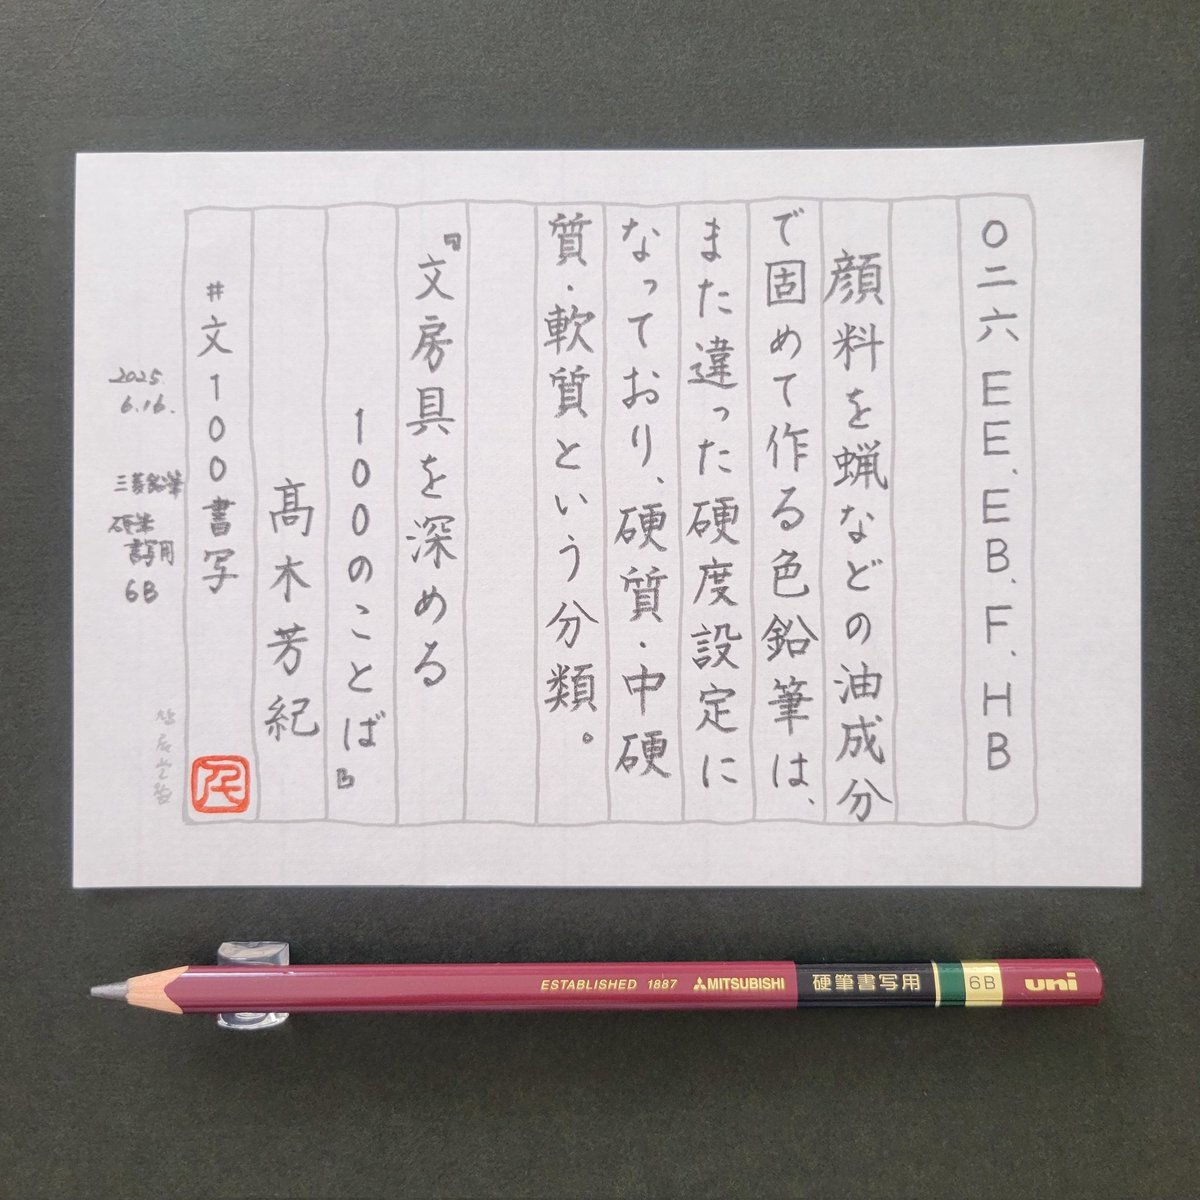 〇二六 EE、EB、F、HB
顔料を蝋などの油成分
で固めて作る色鉛筆は、
また違った硬度設定に
なっており、硬質・中硬
質・軟質という分類。
『文房具を深める
100のことば』
髙木芳紀
#文100書写
2025.
6.16.
三菱鉛筆
硬筆
書写用
6B
ESTABLISHED 1887 MITSUBISHI 硬筆書写用 6B uni